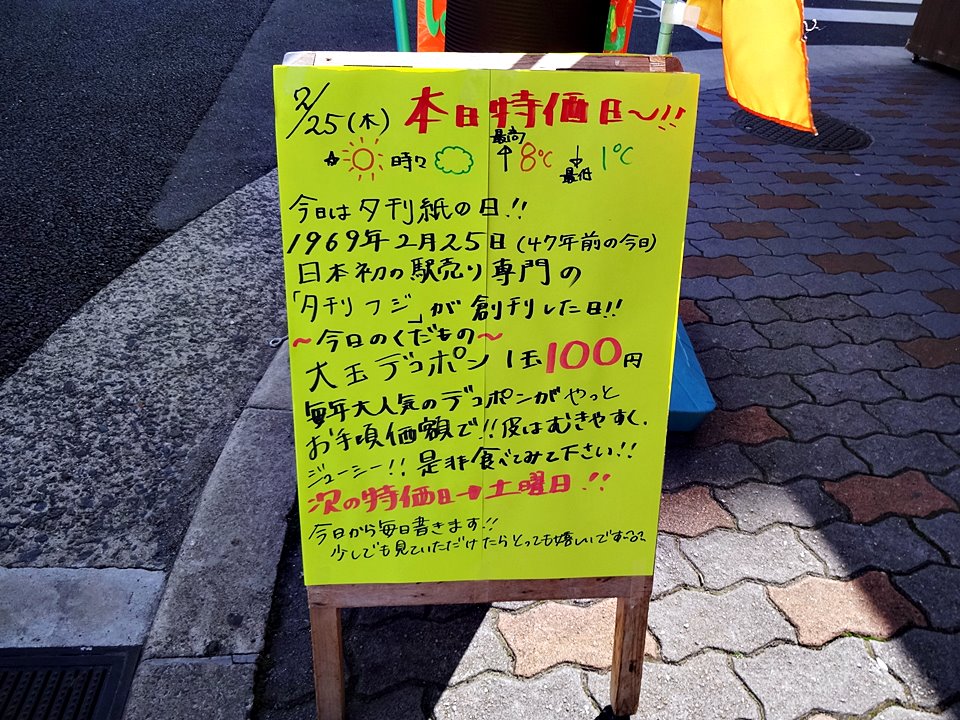 2/25(木) 本日特価日〜!!
☆ 時々 最高↑8℃ 最低↓1℃
今日は夕刊紙の日!!
1969年2月25日(47年前の今日)
日本初の駅売り専門の
「夕刊フジ」が創刊した日!!
〜今日のくだもの〜
大玉デコポン1玉100円
毎年大人気のデコポンがやっと
お手頃価額で!!皮はむきやすく.
ジューシー!!是非食べてみて下さい!!
次の特価日→土曜日!!
今日から毎日書きます!!
少しでも見ていただけたらとっても嬉しいです〜る?